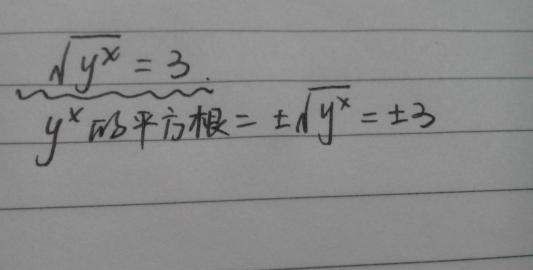 √y^x = 3.
y^x的平方根 = ±√y^x = ±3